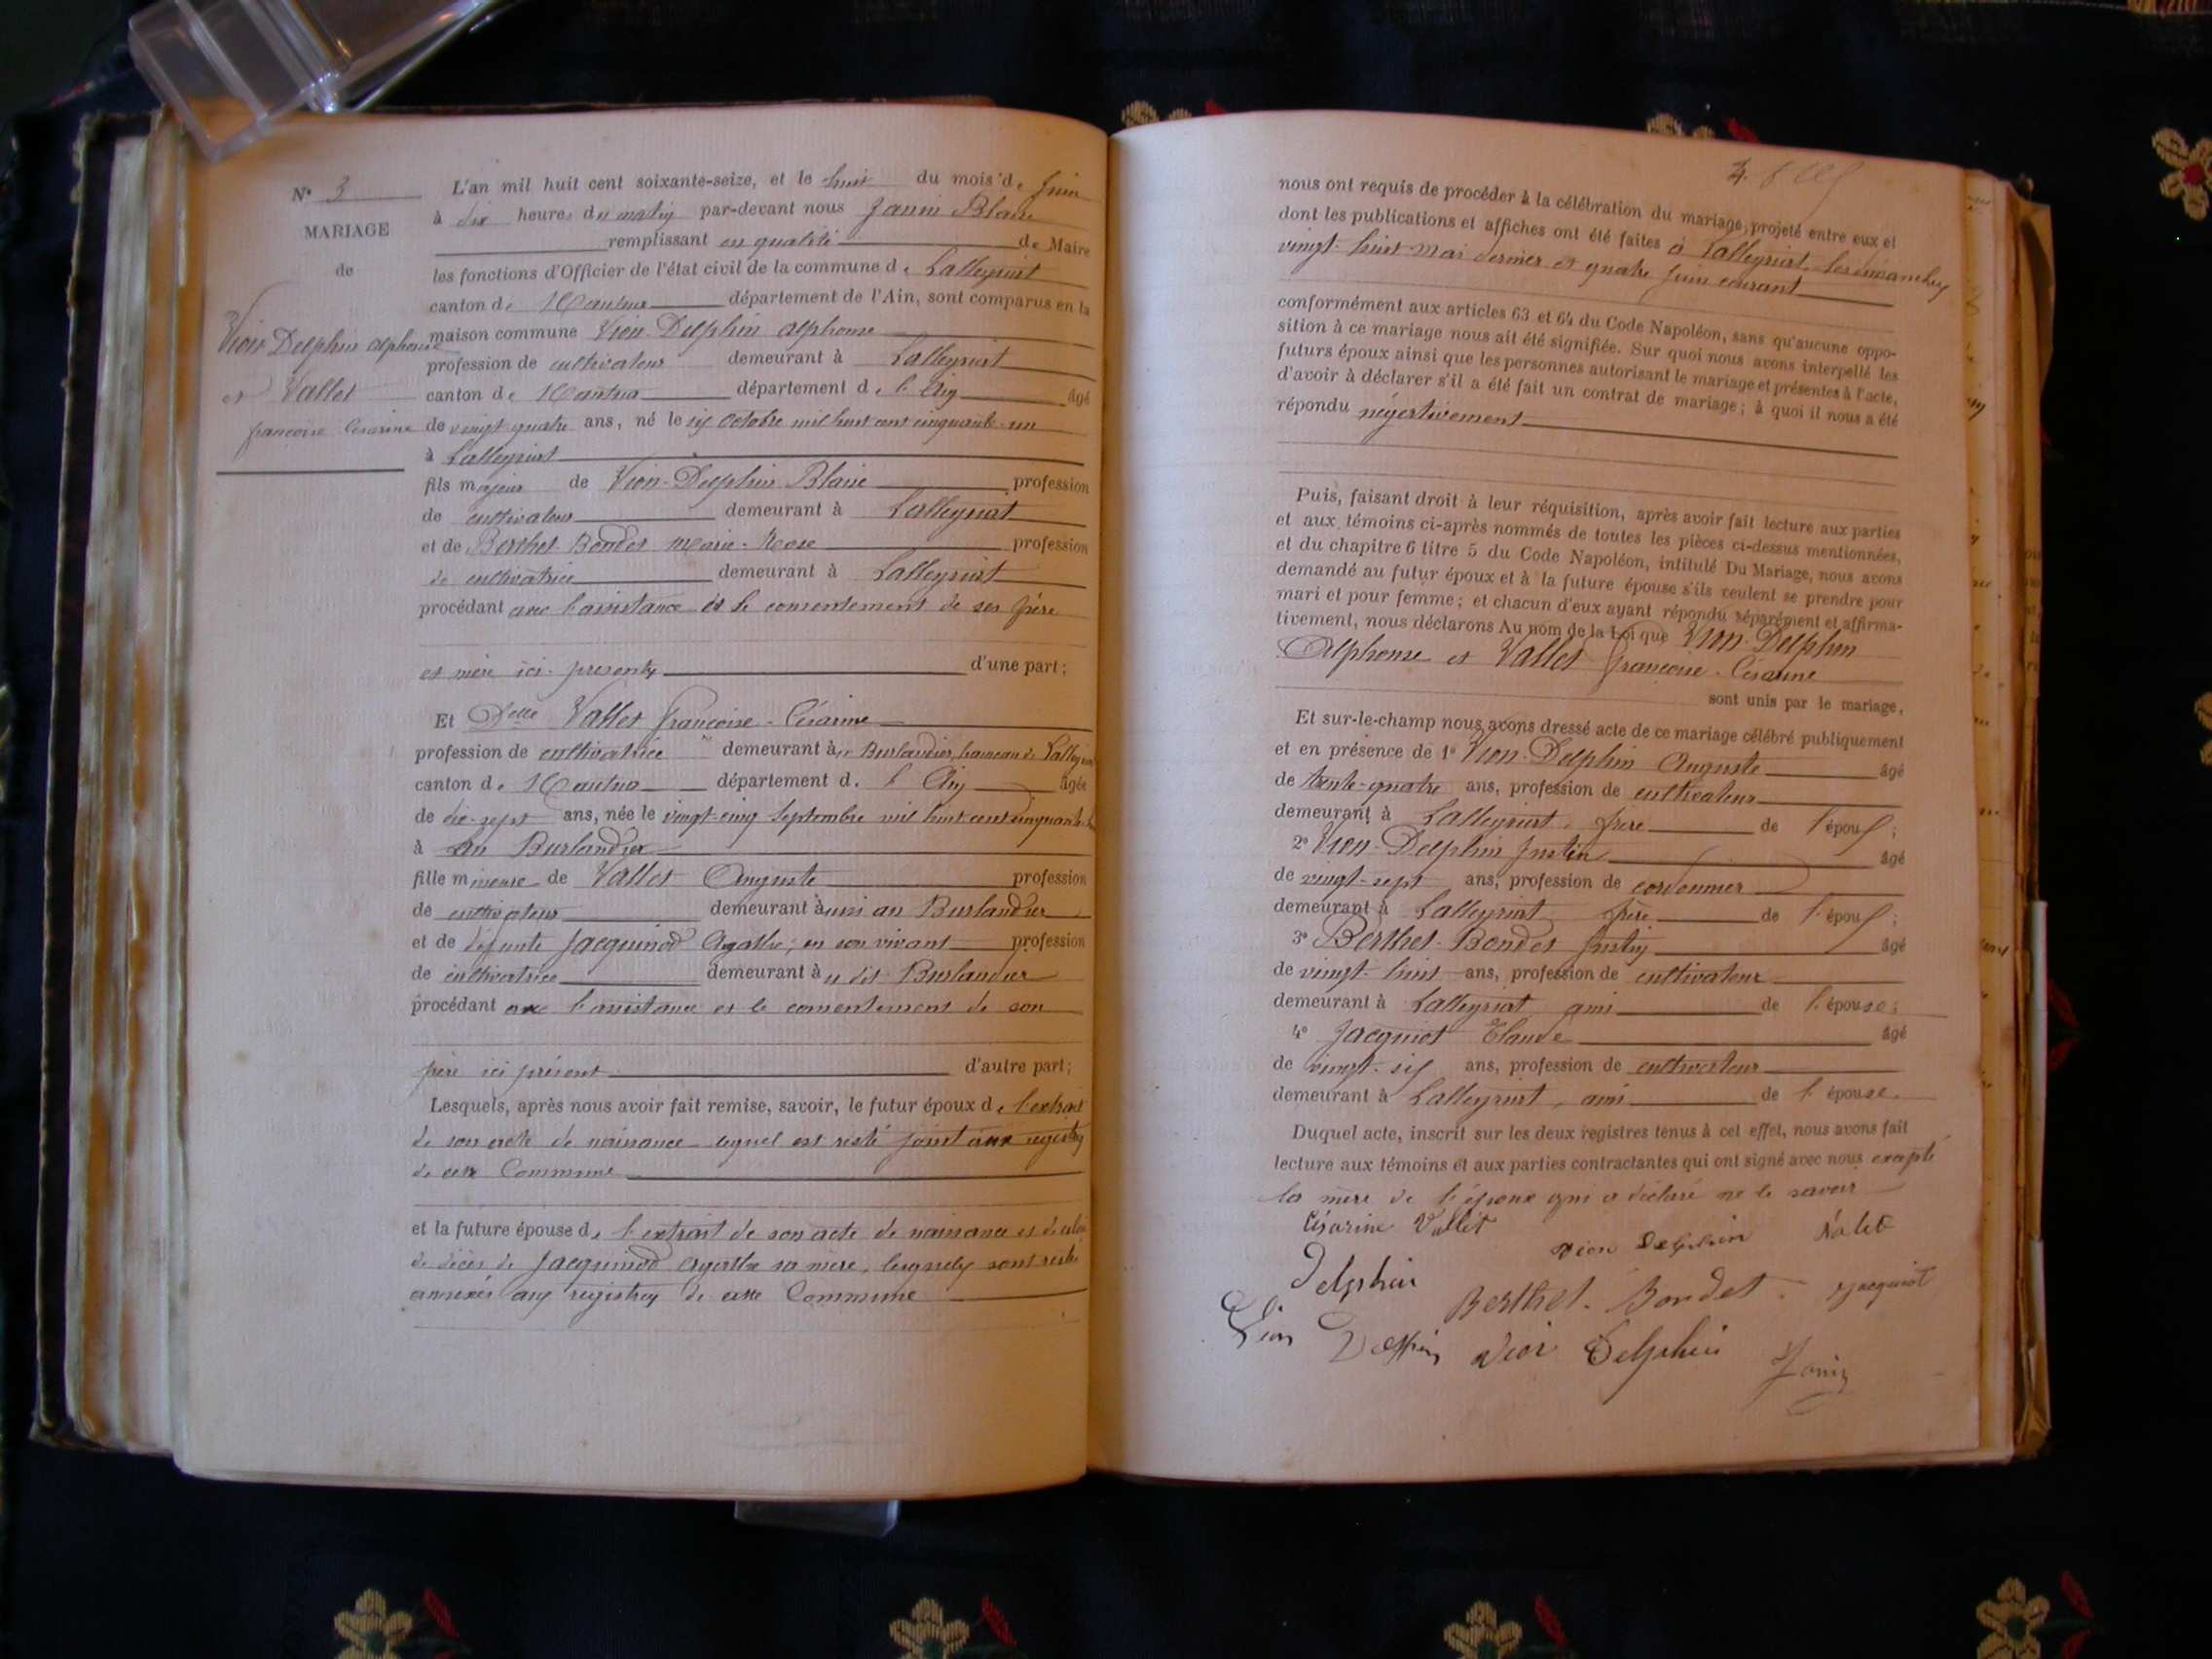 N° 3
MARIAGE
de
Vion Delphin alphonse
et Vallet
françoise Césarine
L'an mil huit cent soixante-seize, et le huit du mois de Juin
à dix heures du matin par-devant nous Janin Blaise
remplissant en qualité de Maire
les fonctions d'Officier de l'état civil de la commune de Lalleyriat
canton de Nantua département de l'Ain, sont comparus en la
maison commune Vion-Delphin alphonse
profession de cultivateur demeurant à Lalleyriat
canton de Nantua département de l'Ain âgé
de vingt quatre ans, né le six Octobre mil huit cent cinquante-un
à Lalleyriat
fils majeur de Vion-Delphin Blaise profession
de cultivateur demeurant à Lalleyriat
et de Berthet-Bondet Marie-Rose profession
de cultivatrice demeurant à Lalleyriat
procédant avec l'assistance et le consentement de ses père
et mère ici présents d'une part;
Et Delle Vallet françoise-Césarine
profession de cultivatrice demeurant au Burlandier, hameau de Lalleyriat
canton de Nantua département de l'Ain âgée
de dix-sept ans, née le vingt-cinq Septembre mil huit cent cinquante-
à au Burlandier
fille mineure de Vallet Auguste profession
de cultivateur demeurant aussi au Burlandier
et de défunte Jacquinod Agathe, en son vivant profession
de cultivatrice demeurant au dit Burlandier
procédant avec l'assistance et le consentement de son
père ici présent d'autre part;
Lesquels, après nous avoir fait remise, savoir, le futur époux de l'extrait
de son acte de naissance lequel est resté joint aux registres
de cette Commune
et la future épouse de l'extrait de son acte de naissance et de celui
de décès de Jacquinod Agathe sa mère, lesquels sont restés
annexés aux registres de cette Commune
nous ont requis de procéder à la célébration du mariage projeté entre eux et
dont les publications et affiches ont été faites à Lalleyriat, les dimanches
vingt-huit mai dernier et quatre Juin courant
conformément aux articles 63 et 64 du Code Napoléon, sans qu'aucune oppo-
sition à ce mariage nous ait été signifiée. Sur quoi nous avons interpellé les
futurs époux ainsi que les personnes autorisant le mariage et présentes à l'acte,
d'avoir à déclarer s'il a été fait un contrat de mariage; à quoi il nous a été
répondu négativement
Puis, faisant droit à leur réquisition, après avoir fait lecture aux parties
et aux témoins ci-après nommés de toutes les pièces ci-dessus mentionnées,
et du chapitre 6 titre 5 du Code Napoléon, intitulé Du Mariage, nous avons
demandé au futur époux et à la future épouse s'ils veulent se prendre pour
mari et pour femme; et chacun d'eux ayant répondu séparément et affirma-
tivement, nous déclarons Au nom de la Loi que Vion-Delphin
Alphonse et Vallet françoise-Césarine
sont unis par le mariage,
Et sur-le-champ nous avons dressé acte de ce mariage célébré publiquement
et en présence de 1° Vion-Delphin Auguste âgé
de trente-quatre ans, profession de cultivateur
demeurant à Lalleyriat, frère de l'époux;
2° Vion-Delphin Justin âgé
de vingt-sept ans, profession de cordonnier
demeurant à Lalleyriat frère de l'époux;
3° Berthet-Bondet Justin âgé
de vingt-huit ans, profession de cultivateur
demeurant à Lalleyriat ami de l'épouse;
4° Jacquiot Claude âgé
de vingt-six ans, profession de cultivateur
demeurant à Lalleyriat, ami de l'épouse.
Duquel acte, inscrit sur les deux registres tenus à cet effet, nous avons fait
lecture aux témoins et aux parties contractantes qui ont signé avec nous excepté
la mère de l'époux qui a déclaré ne le savoir
Césarine Vallet vion Delphin Valet
Delphin Berthet-Bondet Jacquiot
Vion Delphin Vion Delphin Janin